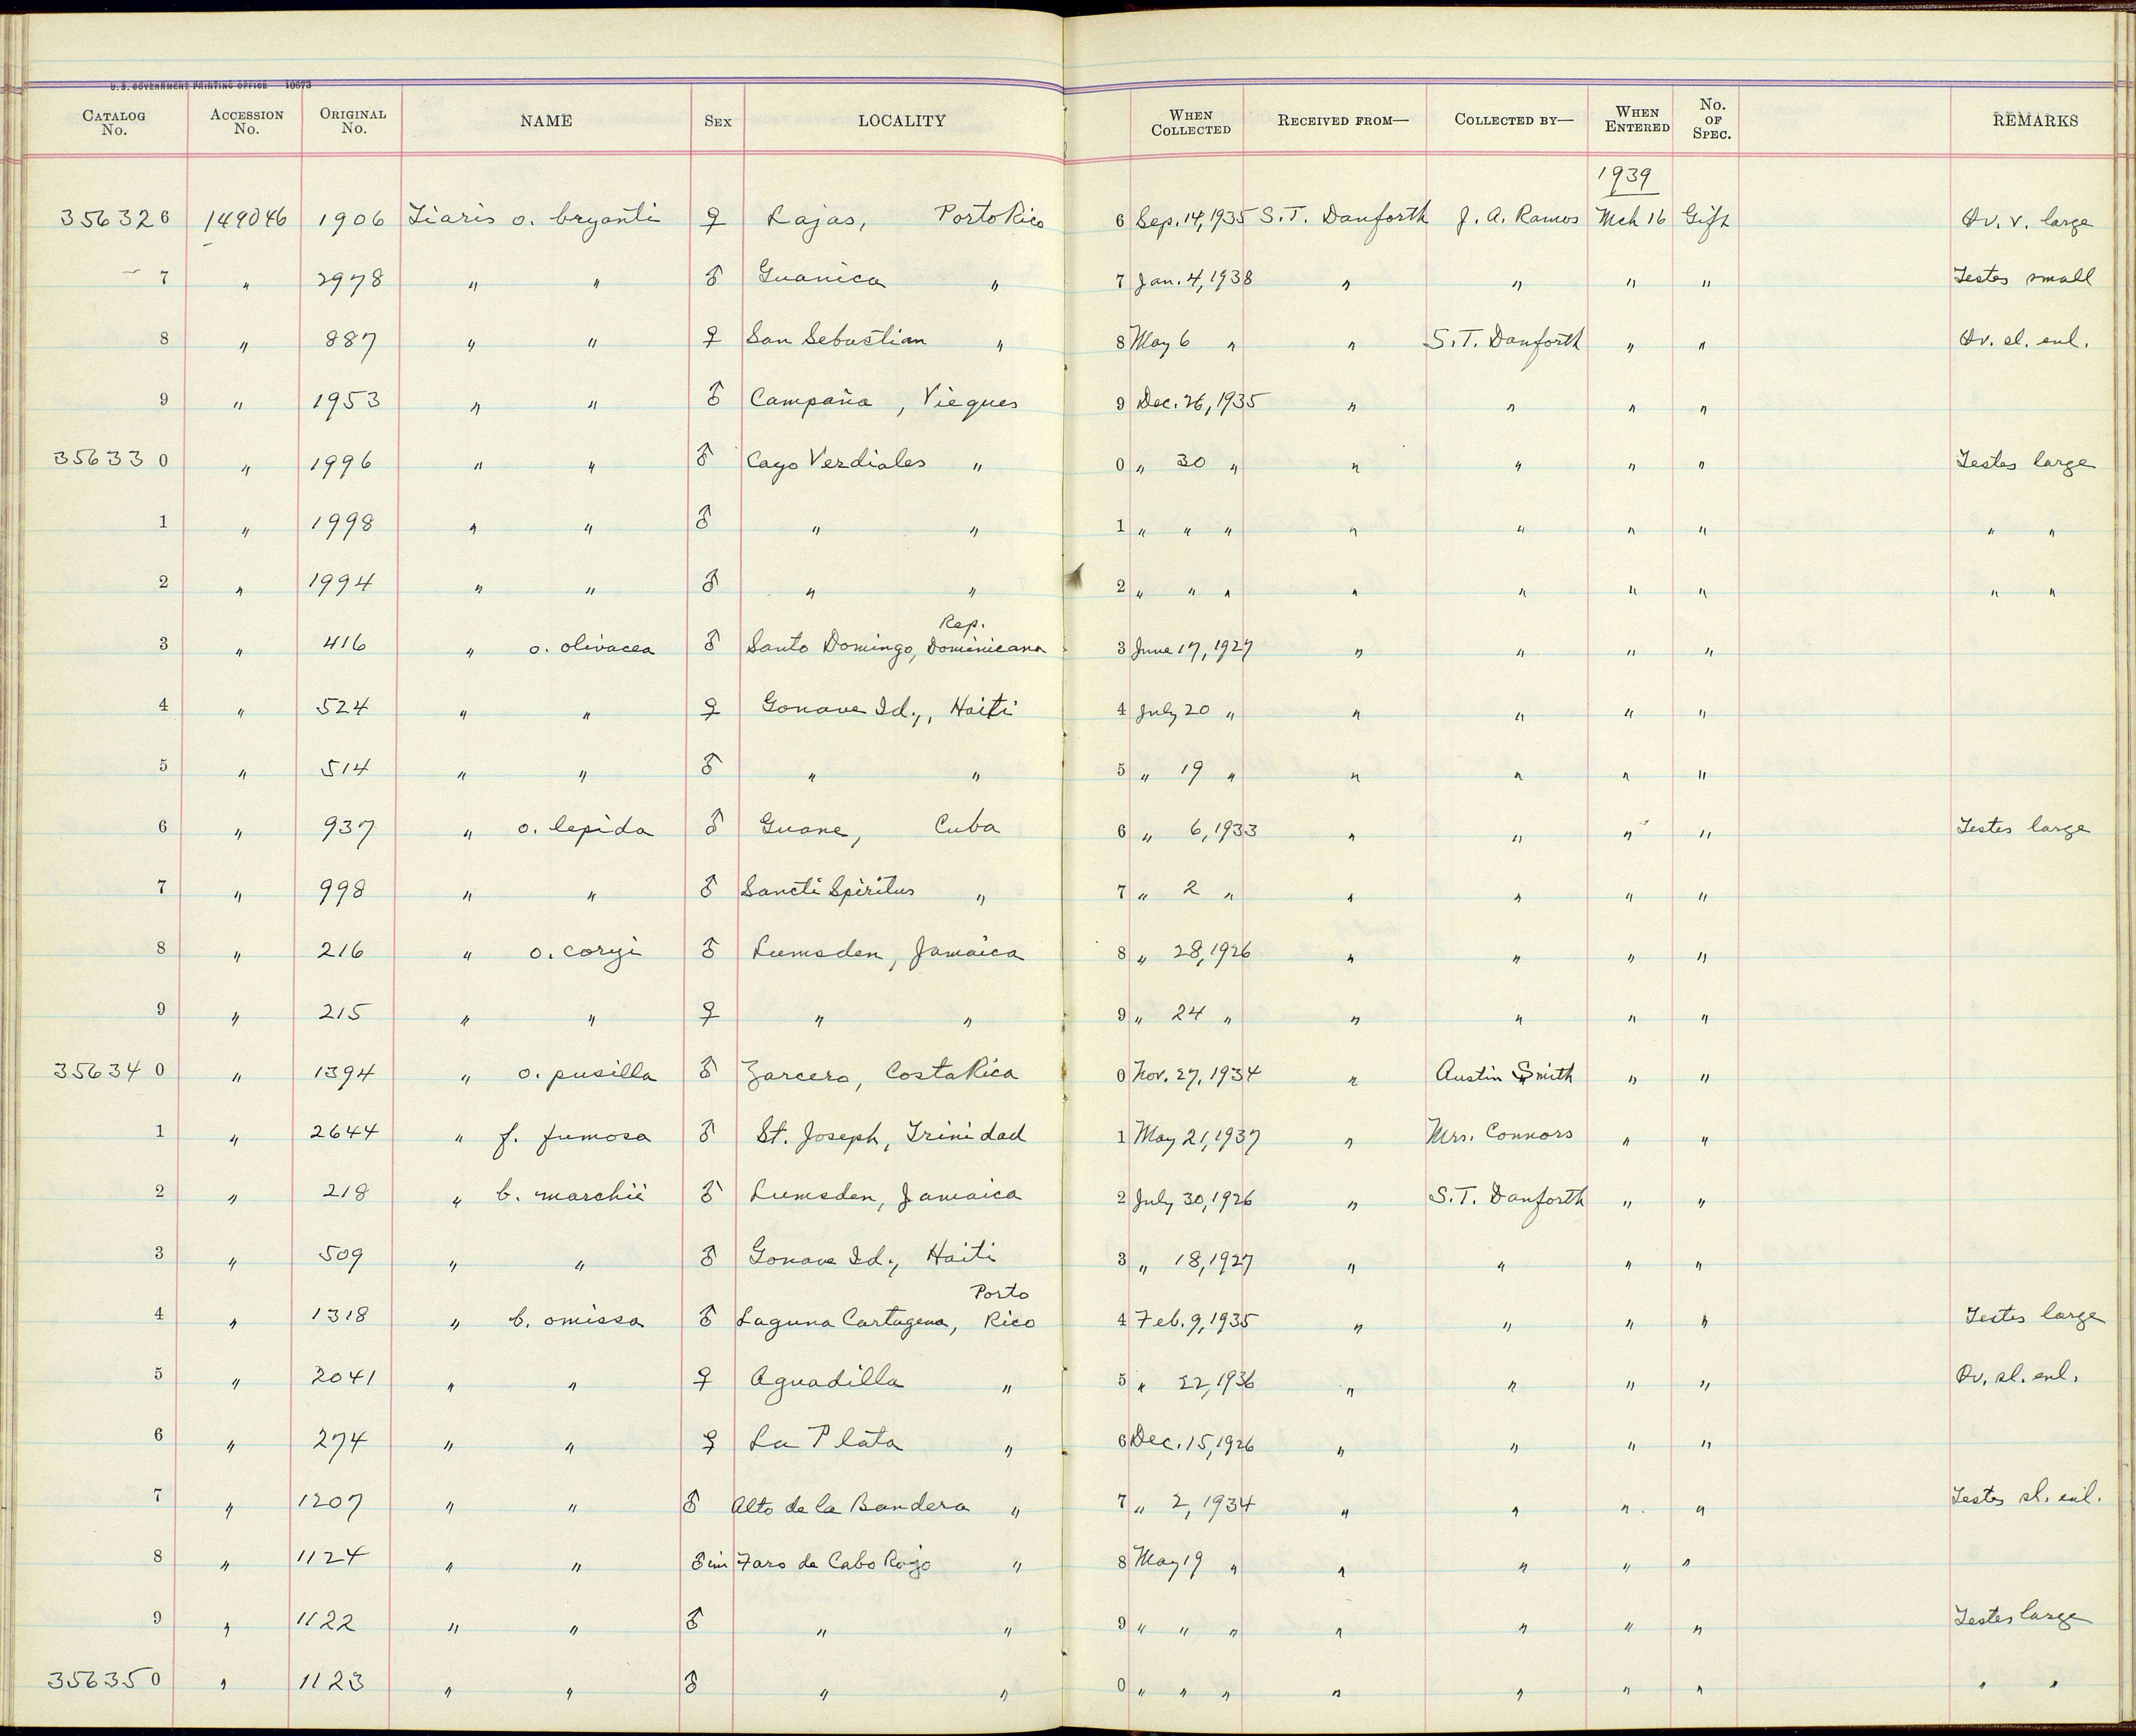 U. S. GOVERNMENT PRINTING OFFICE 10673
CATALOG No. ACCESSION No. ORIGINAL No. NAME SEX LOCALITY WHEN COLLECTED RECEIVED FROM— COLLECTED BY— WHEN ENTERED No. OF SPEC. REMARKS
1939
356326 149046 1906 Tiaris o. bryanti ♀ Lajas, Porto Rico 6 Sep. 14, 1935 S. T. Danforth J. A. Ramos Mch 16 Gift Ov. v. large
7 " 2978 " " ♂ Guanica " 7 Jan. 4, 1938 " " " " Testes small
8 " 887 " " ♀ San Sebastian " 8 May 6 " " S. T. Danforth " " Ov. sl. enl.
9 " 1953 " " ♂ Campaña, Vieques 9 Dec. 26, 1935 " " " "
356330 " 1996 " " ♂ Cayo Verdiales " 0 " 30 " " " " " Testes large
1 " 1998 " " ♂ " " 1 " " " " " " " " "
2 " 1994 " " ♂ " " 2 " " " " " " " " "
3 " 416 " o. olivacea ♂ Santo Domingo, Rep. Dominicana 3 June 17, 1927 " " " "
4 " 524 " " ♀ Gonave Id., Haiti 4 July 20 " " " " "
5 " 514 " " ♂ " " 5 " 19 " " " " "
6 " 937 " o. lepida ♂ Guane, Cuba 6 " 6, 1933 " " " " Testes large
7 " 998 " " ♂ Sancti Spiritus " 7 " 2 " " " " "
8 " 216 " o. coryi ♂ Lumsden, Jamaica 8 " 28, 1926 " " " "
9 " 215 " " ♀ " " 9 " 24 " " " " "
356340 " 1394 " o. pusilla ♂ Zarcero, Costa Rica 0 Nov. 27, 1934 " Austin Smith " "
1 " 2644 " f. fumosa ♂ St. Joseph, Trinidad 1 May 21, 1937 " Mrs. Connors " "
2 " 218 " b. marchii ♂ Lumsden, Jamaica 2 July 30, 1926 " S. T. Danforth " "
3 " 509 " " ♂ Gonave Id., Haiti 3 " 18, 1927 " " " "
4 " 1318 " b. omissa ♂ Laguna Cartagena, Porto Rico 4 Feb. 9, 1935 " " " " Testes large
5 " 2041 " " ♀ Aguadilla " 5 " 22, 1936 " " " " Ov. sl. enl.
6 " 274 " " ♀ La Plata " 6 Dec. 15, 1926 " " " "
7 " 1207 " " ♂ Alto de la Bandera " 7 " 2, 1934 " " " " Testes sl. enl.
8 " 1124 " " ♂ im Faro de Cabo Rojo " 8 May 19 " " " " "
9 " 1122 " " ♂ " " 9 " " " " " " " Testes large
356350 " 1123 " " ♂ " " 0 " " " " " " " " "